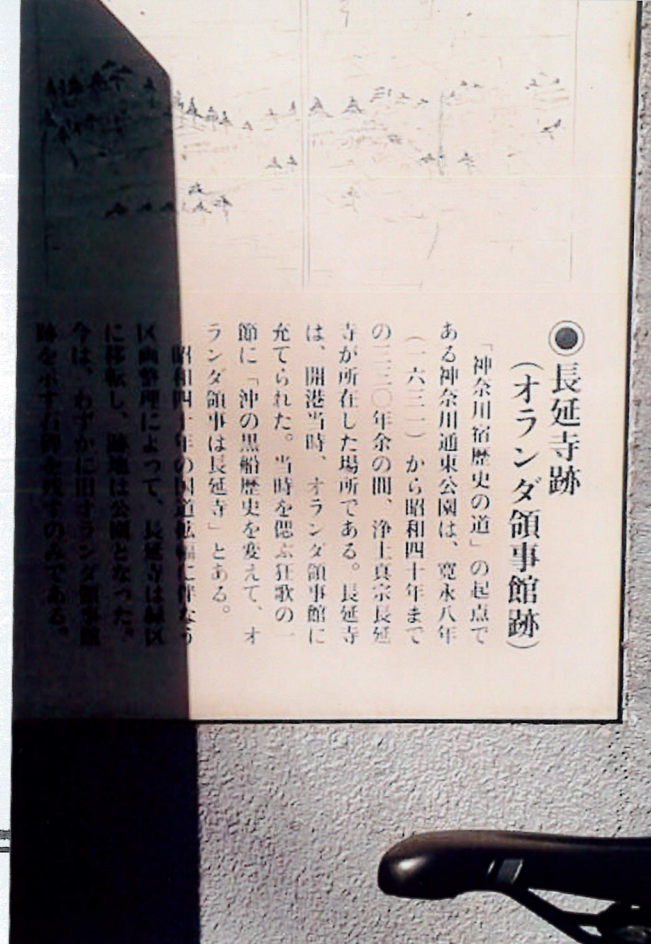 ◉長延寺跡
(オランダ領事館跡)
「神奈川宿歴史の道」の起点で
ある神奈川通東公園は、寛永八年
(一六三一)から昭和四十年まで
の三三〇年余の間、浄土真宗長延
寺が所在した場所である。長延寺
は、開港当時、オランダ領事館に
充てられた。当時を偲ぶ狂歌の一
節に「沖の黒船歴史を変えて、オ
ランダ領事は長延寺」とある。
昭和四十年の国道拡幅に伴なう
区画整理によって、長延寺は緑区
に移転し、跡地は公園となった。
今は、わずかに旧オランダ領事館
跡を示す石碑を残すのみである。